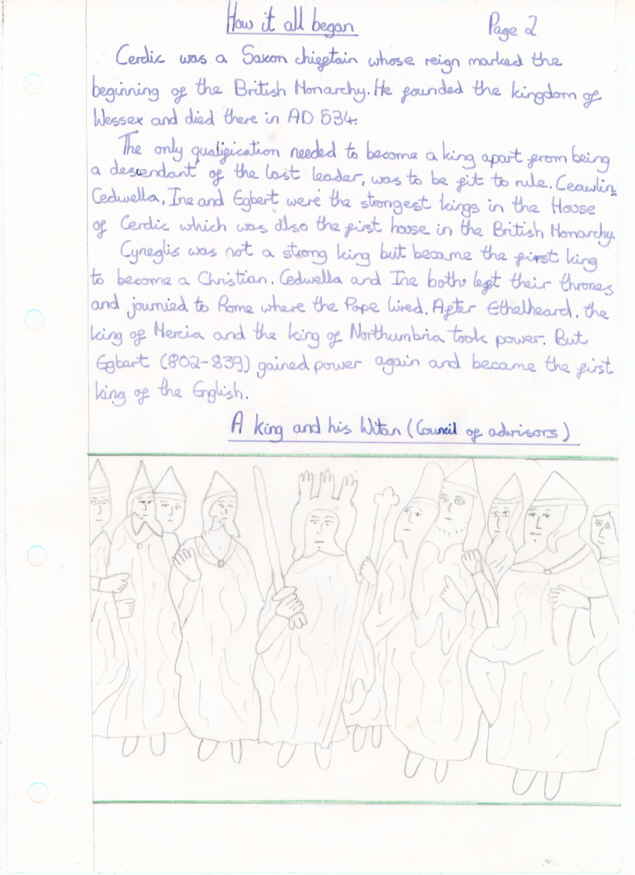 How it all began
Page 2
Cerdic was a Saxon chieftain whose reign marked the
beginning of the British Monarchy. He founded the kingdom of
Wessex and died there in AD 534.
The only qualification needed to become a king apart from being
a descendant of the last leader, was to be fit to rule. Ceawlin,
Cedwella, Ine and Egbert were the strongest kings in the House
of Cerdic which was also the first house in the British Monarchy.
Cyneglis was not a strong king but became the first king
to become a Christian. Cedwella and Ine both left their thrones
and journied to Rome where the Pope lived. After Ethelheard, the
king of Mercia and the king of Northumbria took power. But
Egbart (802-839) gained power again and became the first
king of the English.
A king and his Witan (Council of advisors)